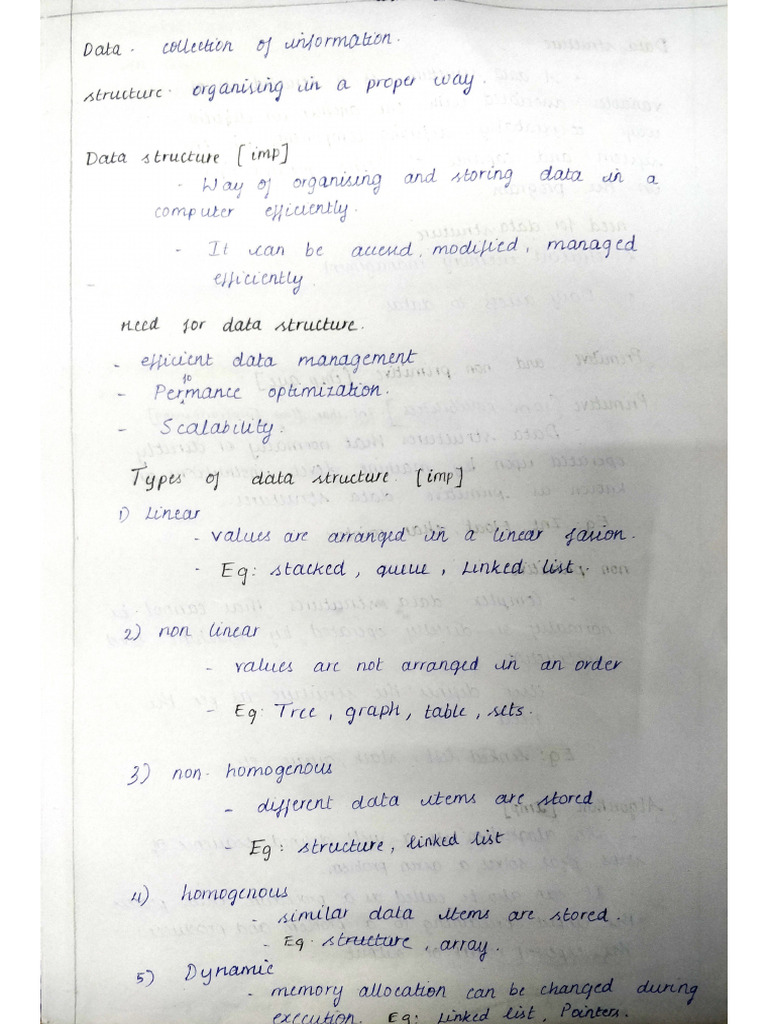 Data - collection of information.
structure - organising in a proper way.
Data structure [imp]
- Way of organising and storing data in a
computer efficiently.
- It can be accesd, modified, managed
efficiently.
need for data structure.
- efficient data management
- Perfomance optimization.
- Scalability.
Types of data structure. [imp]
1) Linear
- values are arranged in a linear fasion.
- Eg: stacked, queue, Linked list.
2) non linear
- values are not arranged in an order
- Eg: Tree, graph, table, sets.
3) non-homogenous
- different data items are stored
- Eg: structure, linked list
4) homogenous
- similar data items are stored.
- Eg: structure, array.
5) Dynamic
- memory allocation can be changed during
execution. Eg: Linked list, Pointers.